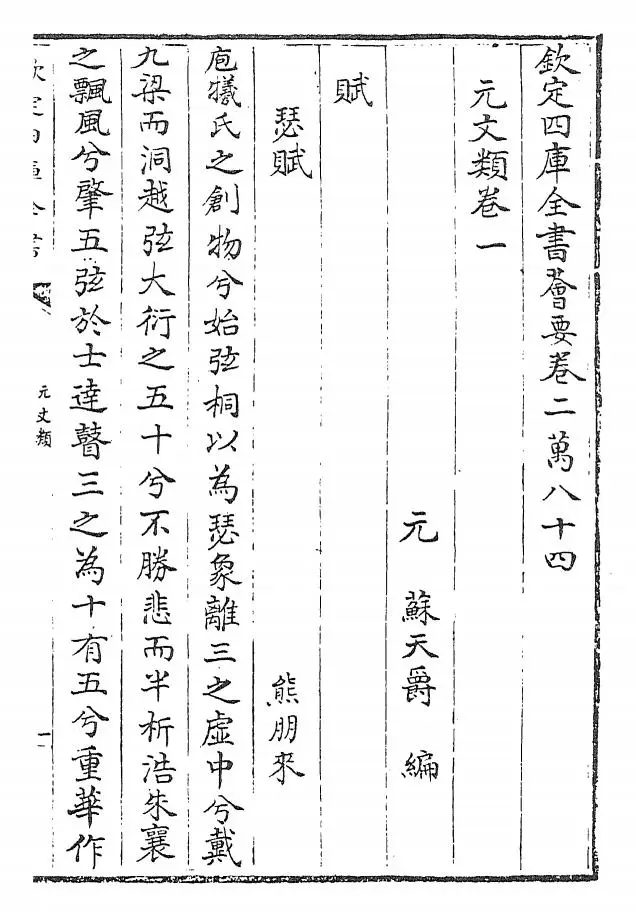 欽定四庫全書薈要卷二萬八十四
元文類卷一
元 蘇天爵 編
賦
瑟賦 熊朋來
庖犧氏之創物兮始弦桐以為瑟象離三之虛中兮戴
九梁而洞越弦大衍之五十兮不勝悲而半析浩朱襄
之飄風兮肇五弦於士達瞽三之為十有五兮重華作
欽定四庫全書
元文類
一